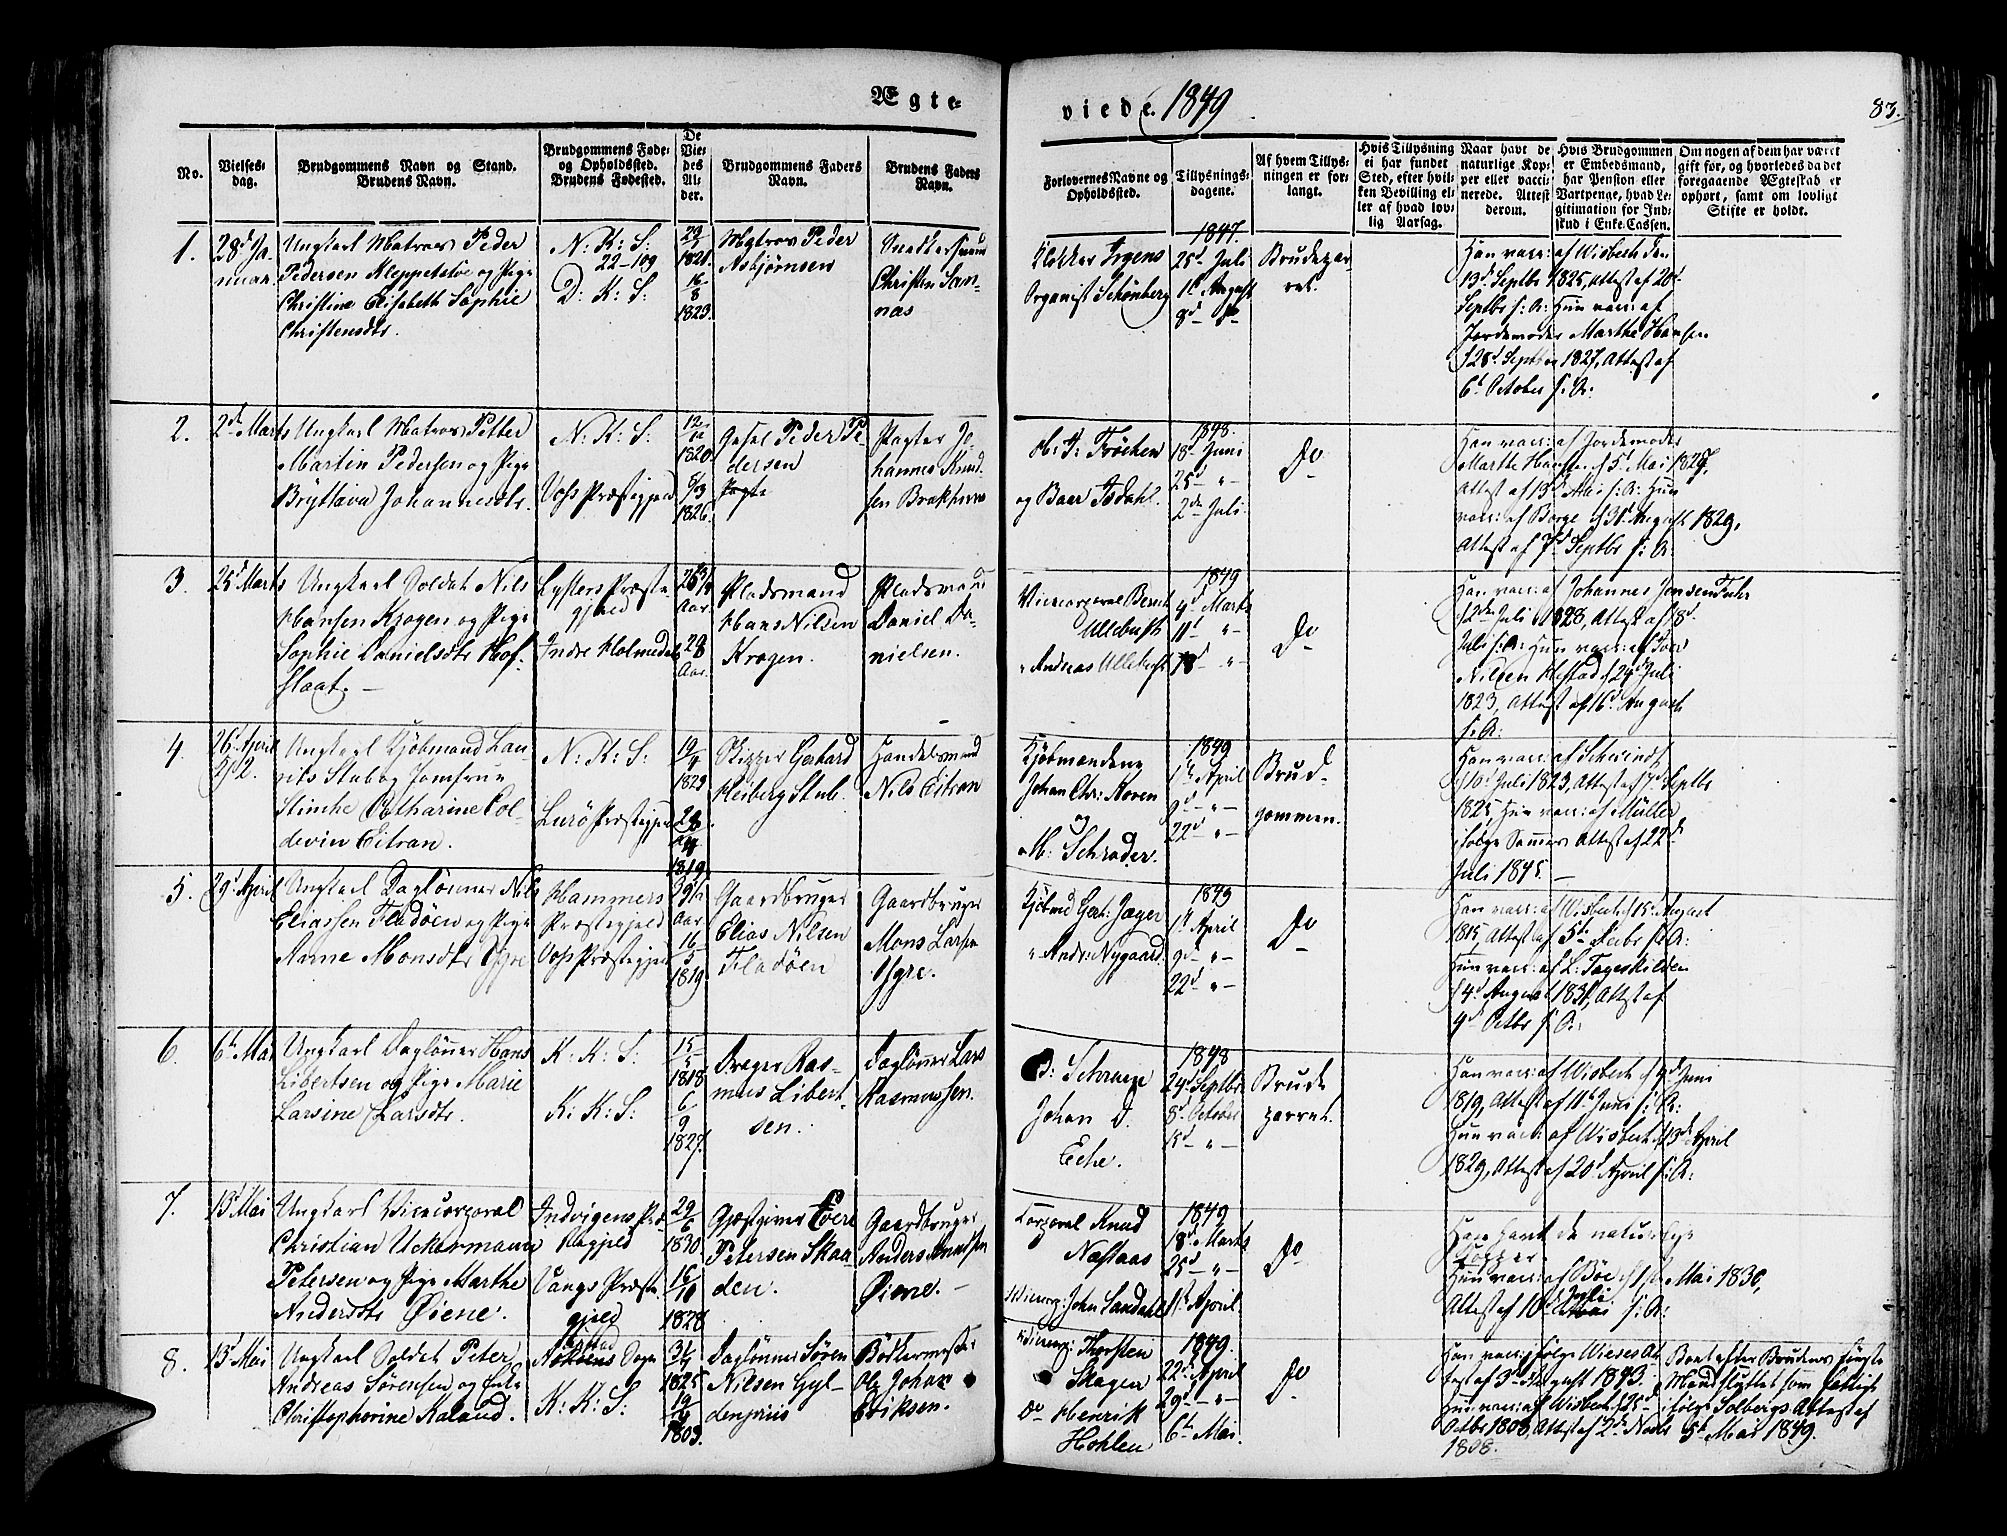 Ægte-
viede. 1849
83.
No.
Vielses-
dag.
Brudgommens Navn og Stand.
Brudens Navn.
Brudgommens Føde-
og Opholdssted.
Brudens Fødested.
De
Vie-
des
Al-
der.
Brudgommens Faders
Navn.
Brudens Faders
Navn.
Forlovernes Navne og
Opholdssted.
Tillysnings-
dagene.
Af hvem Tillys-
ningen er for-
langt.
Hvis Tillysning
ei har fundet
Sted, efter hvil-
ken Bevilling el-
ler af hvad lov-
lig Aarsag.
Naar havt de
naturlige Kop-
per eller vacci-
nerede. Attest
derom.
Hvis Brudgommen
er Embedsmand,
har Pension eller
Vartpenge, hvad Le-
gitimation for Ind-
skud i Enke-Cassen.
Om nogen af dem har været
gift før, og hvorledes da det
foregaaende Ægteskab er
ophørt, samt om lovligt
Skifte er holdt.
1.
28d Ja-
nuar
Ungkarl Matros Peder
Pedersen Kleppestøe og Pige
Christine Elisabeth Sophie
Christensdtr.
N: K: S:
22-109
D: K: S:
1821
16
8
1823.
Matros Peder
Asbjørnsen
Christen San-
nas
Klokker Irgens
Organist Schønberg
1847.
25d Juli
1t August
8d do
Brudepar-
ret.
Han vacc: af Wisbech den
13d Septbr 1825, Attest af 20d
Septbr s: A: Hun vacc: af
Jordemoder Marthe Hansen
28d Septbr 1827, Attest af
6t October s: A:
2.
2d Marts
Ungkarl Matros Petter
Martin Pedersen og Pige
Brytteva Johannesdtr.
N: K: S:
Voss Præstegjeld
12
1820
5/3
1826.
Peder Pe-
dersen
Pagter Jo-
hannes Knud-
sen Brekhus
H. J: Frøchen
og Baar Isdahl.
1848.
18d Juni
25d "-
2den Juli
Do
Han vacc: af Jordemoder
Marthe Hansen d 5t Mai 1827,
Attest af 13d Mai s: A: Hun
vacc: af Borge d 31t August 1829,
Attest af 7d Septbr s: A:
3
25d Marts
Ungkarl Soldat Nils
Hansen Krogen og Pige
Sophie Danielsdtr Hof-
slaat. -
Lysters Præste-
gjeld
Indre Holmedal
Aar
28
Aar.
Pladsmand
Hans Nilsen
Krogen.
Pladsmand
Daniel Da-
nielsen.
Vicecorporal Bernt
Ullebust
" Andreas Ullebust
1849
4d Marts
11t "-
18d "-
Do
2den Juli 1828, Attest af 8d
Juli s: A: Hun vacc: af
Nilsen d 24d Juli
1823, Attest af 16d August
s: A:
4.
26d April
Ungkarl Kjøbmand Lau-
rits Stub og Jomfrue
Stinche Catharine Col-
devin Eitran.
N: K: S:
Lurö Præstegjeld
19
4
1823
28
1819
Skipper Gerhard
Heiberg Stub.
Handelsmand
Nils Eitran
Kjøbmændene
Johan Chr: Koren
og
M: Schrøder.
1849
1t April
9d "-
22d "-
Brud-
gommen.
10d Juli 1823, Attest af 7d Septbr
1825, Hun vacc: af Müller
ifølge Sammes Attest af 22d
Juli 1845. -
5.
29d April
Ungkarl Daglønner Nils
Eliassen Fladøen og Pige
Anne Monsdtr Ygre
Hammers
Præstegjeld
Voss Præstegjeld
Aar
16
5
1819.
Gaardbruger
Elias Nilsen
Fladøen
Gaardbruger
Mons Larsen
Ygre.
Kjøbmd Gert: Jæger
" Andr: Nygaard.
1849
1t April
9d "-
22d "-
Do
Han vacc: af Wisbech d 15d August
1815, Attest af 5te Decbr s: A:
Hun vacc: af L:
14d August 1831, Attest af
9d Octbr s: A:
6.
6t Mai
Ungkarl Daglønner Hans
Libertsen og Pige Marie
Larsine Larsdtr.
K: K: S:
K: K: S:
15
5
1818
6
9
1827.
Drager Ras-
mus Libert-
sen.
Dagløner Lars
Rasmussen.
Johan D.
1848
24d Septbr
8d October
15d "-
Brude
parret.
Han vacc: af Wisbech d 4d Juni
1819, Attest af 11t Juni s: A:
Hun vacc: af Wisbech d 13d April
1829, Attest af 20d April s: A:
7.
13d Mai
Ungkarl Vicecorporal
Christian Uckermann
Petersen og Pige Marthe
Andersdtr Øiene.
Indvigens Præ-
stegjeld
Vangs Præste-
gjeld
29
6
1830
16
10
1828
Gjæstgiver Evert
Petersen Skaa-
den.
Gaardbruger
Anders Knudsen
Øiene. -
Corporal Knud
Næstaas
Vicecorp: John Sandahl
1849
18d Marts
25d "-
1t April
Do
Han havt de naturlige
Kopper
Hun vacc: af Böe d 1t Mai 1830,
Attest af 10d Juli s: A:
8.
13d Mai
Ungkarl Soldat Peter
Andreas Sørensen og Enke
Christophorine Kaland.
Askøens Sogn
K: K: S:
31
1825
19
1803.
Dagløner Søren
Nilsen Gyl-
denpriis
Bödkermester
Ole Johan
Eriksen.
Vicecorp: Thorsten
Skagen
Do Henrik
Hohlen
1849.
22d April
29d "-
6t Mai.
Do
Han vacc: ifølge Wieses At-
test af 3d August 1843.
Hun vacc: af Wisbech d 25d
Octbr 1808, Attest af 2d Novbr
1808.
Bort efter Brudens første
Mand skiftet som fattigt
ifølge Solbergs Attest af
5t Mai 1849.